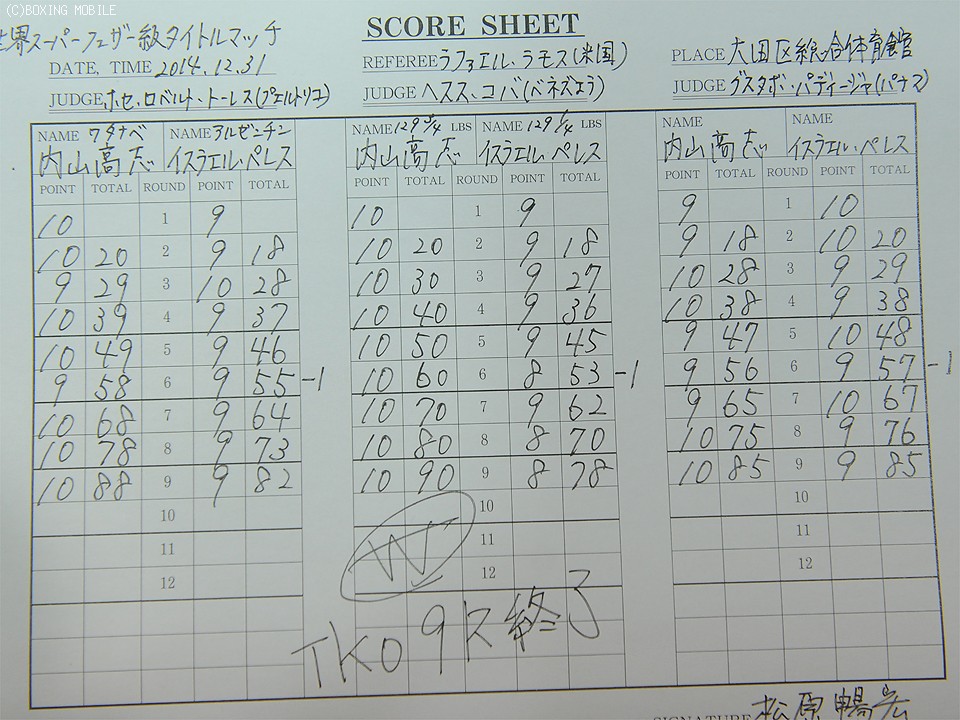 (C)BOXING MOBILE
SCORE SHEET
世界スーパーフェザー級タイトルマッチ
DATE, TIME 2014.12.31
REFEREE ラファエル・ラモス(米国)
PLACE 大田区総合体育館
JUDGE ホセ・ロベルト・トーレス(プエルトリコ)
JUDGE ヘスス・コバ(ベネズエラ)
JUDGE グスタボ・パディージャ(パナマ)
NAME ワタナベ NAME アルゼンチン NAME 129 3/4 LBS NAME 129 1/4 LBS NAME NAME
内山高志 イスラエル・ペレス 内山高志 イスラエル・ペレス 内山高志 イスラエル・ペレス
POINT TOTAL ROUND POINT TOTAL POINT TOTAL ROUND POINT TOTAL POINT TOTAL ROUND POINT TOTAL
10 1 9 10 1 9 9 1 10
10 20 2 9 18 10 20 2 9 18 9 18 2 10 20
9 29 3 10 28 10 30 3 9 27 10 28 3 9 29
10 39 4 9 37 10 40 4 9 36 10 38 4 9 38
10 49 5 9 46 10 50 5 9 45 9 47 5 10 48
9 58 6 9 55 -1 10 60 6 8 53 -1 9 56 6 9 57 -1
10 68 7 9 64 10 70 7 9 62 9 65 7 10 67
10 78 8 9 73 10 80 8 8 70 10 75 8 9 76
10 88 9 9 82 10 90 9 8 78 10 85 9 9 85
10 10 10
11 W 11 11
12 12 12
TKO 9R終了
SIGNATURE 松原暢宏